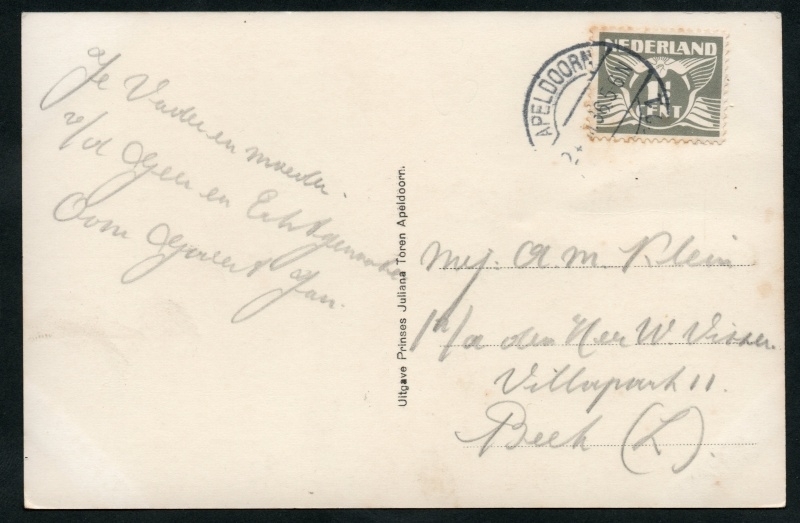 Je Vader en moeder.
v/d Heer en Echtgenoote
Oom Govert Jan.
Uitgave Prinses Juliana Toren Apeldoorn.
NEDERLAND
1½
CENT
APELDOORN
Mej. A. M. Klein
p/a den Heer W Visser
Villapark 11.
Beek (L).